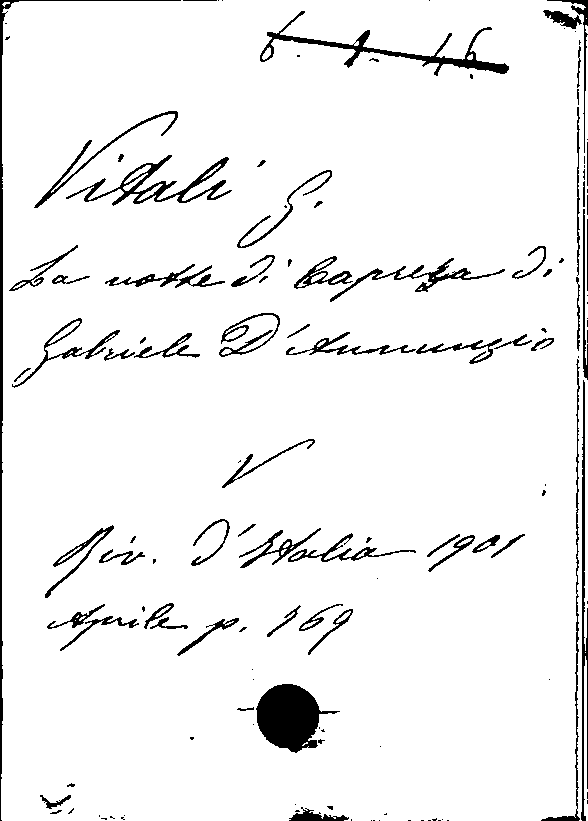 6. 1. 46.
Vitali G.
La notte di Caprera di
Gabriele D'Annunzio
V
Riv. d'Italia 1901
Aprile p. 769